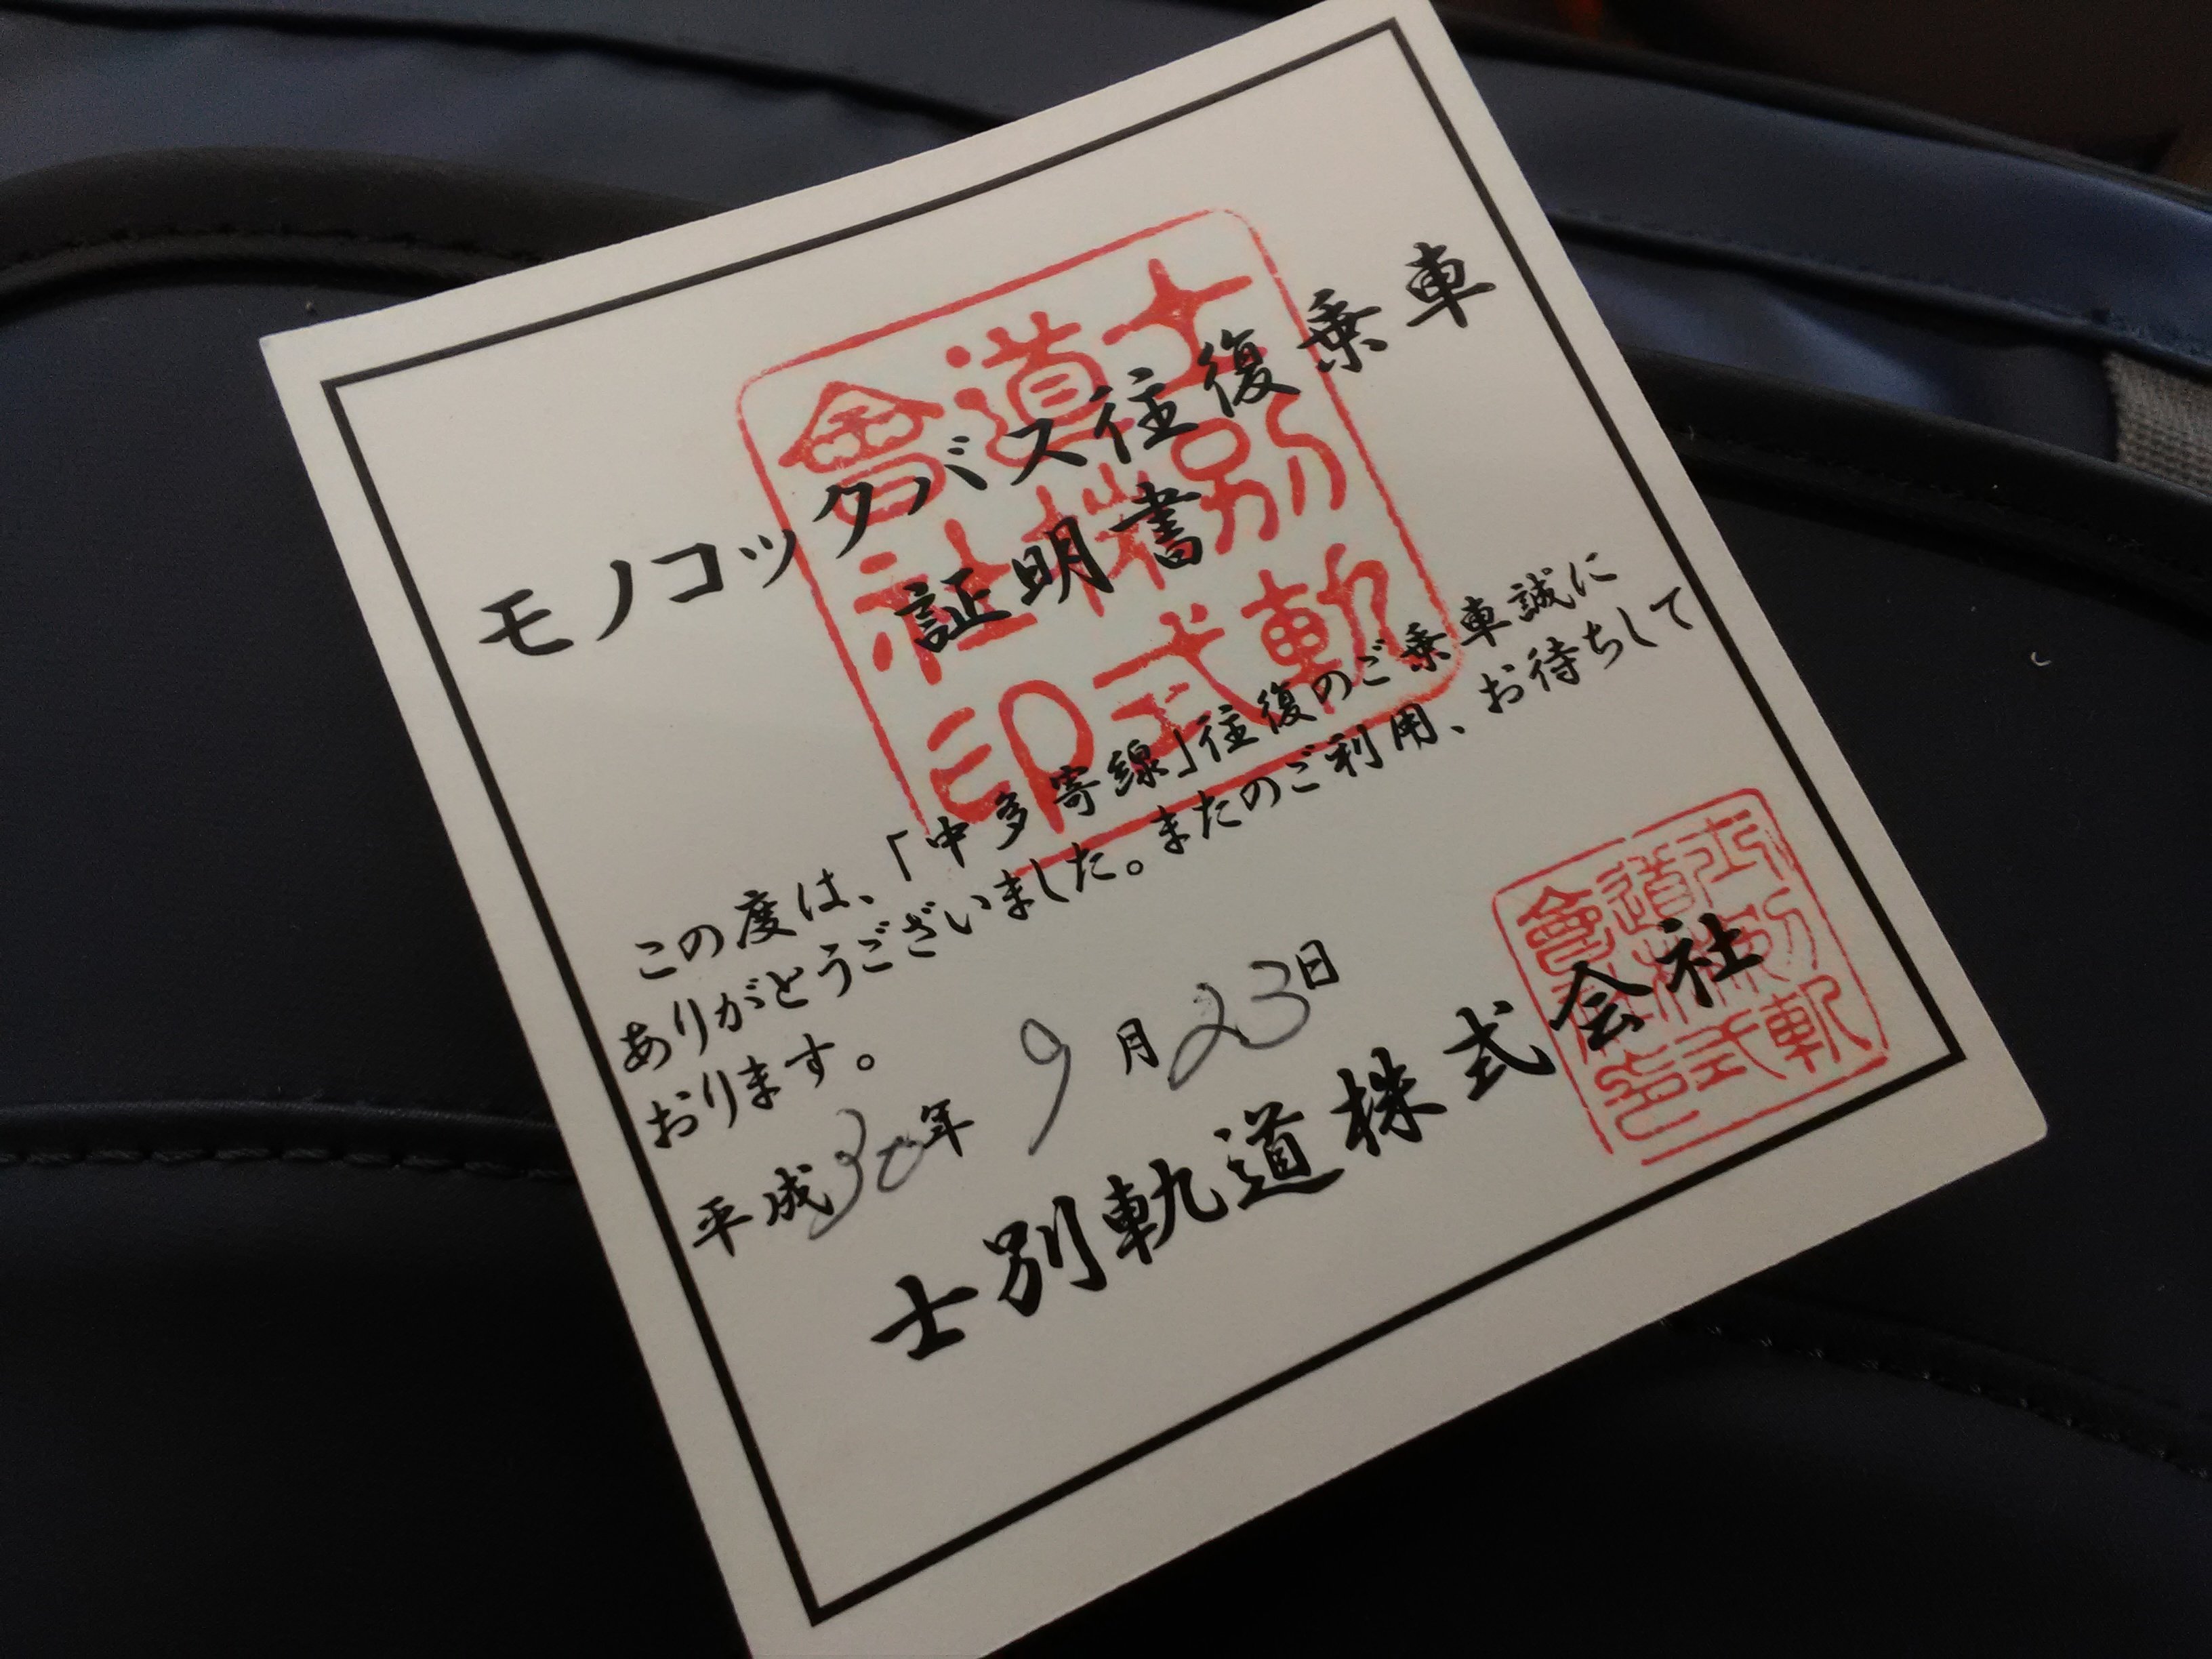 モノコックバス往復乗車
証明書
この度は、「中多寄線」往復のご乗車誠に
ありがとうございました。またのご利用、お待ちして
おります。
平成30年 9月23日
士別軌道株式会社
士別軌道株式會社印
士別軌道株式會社